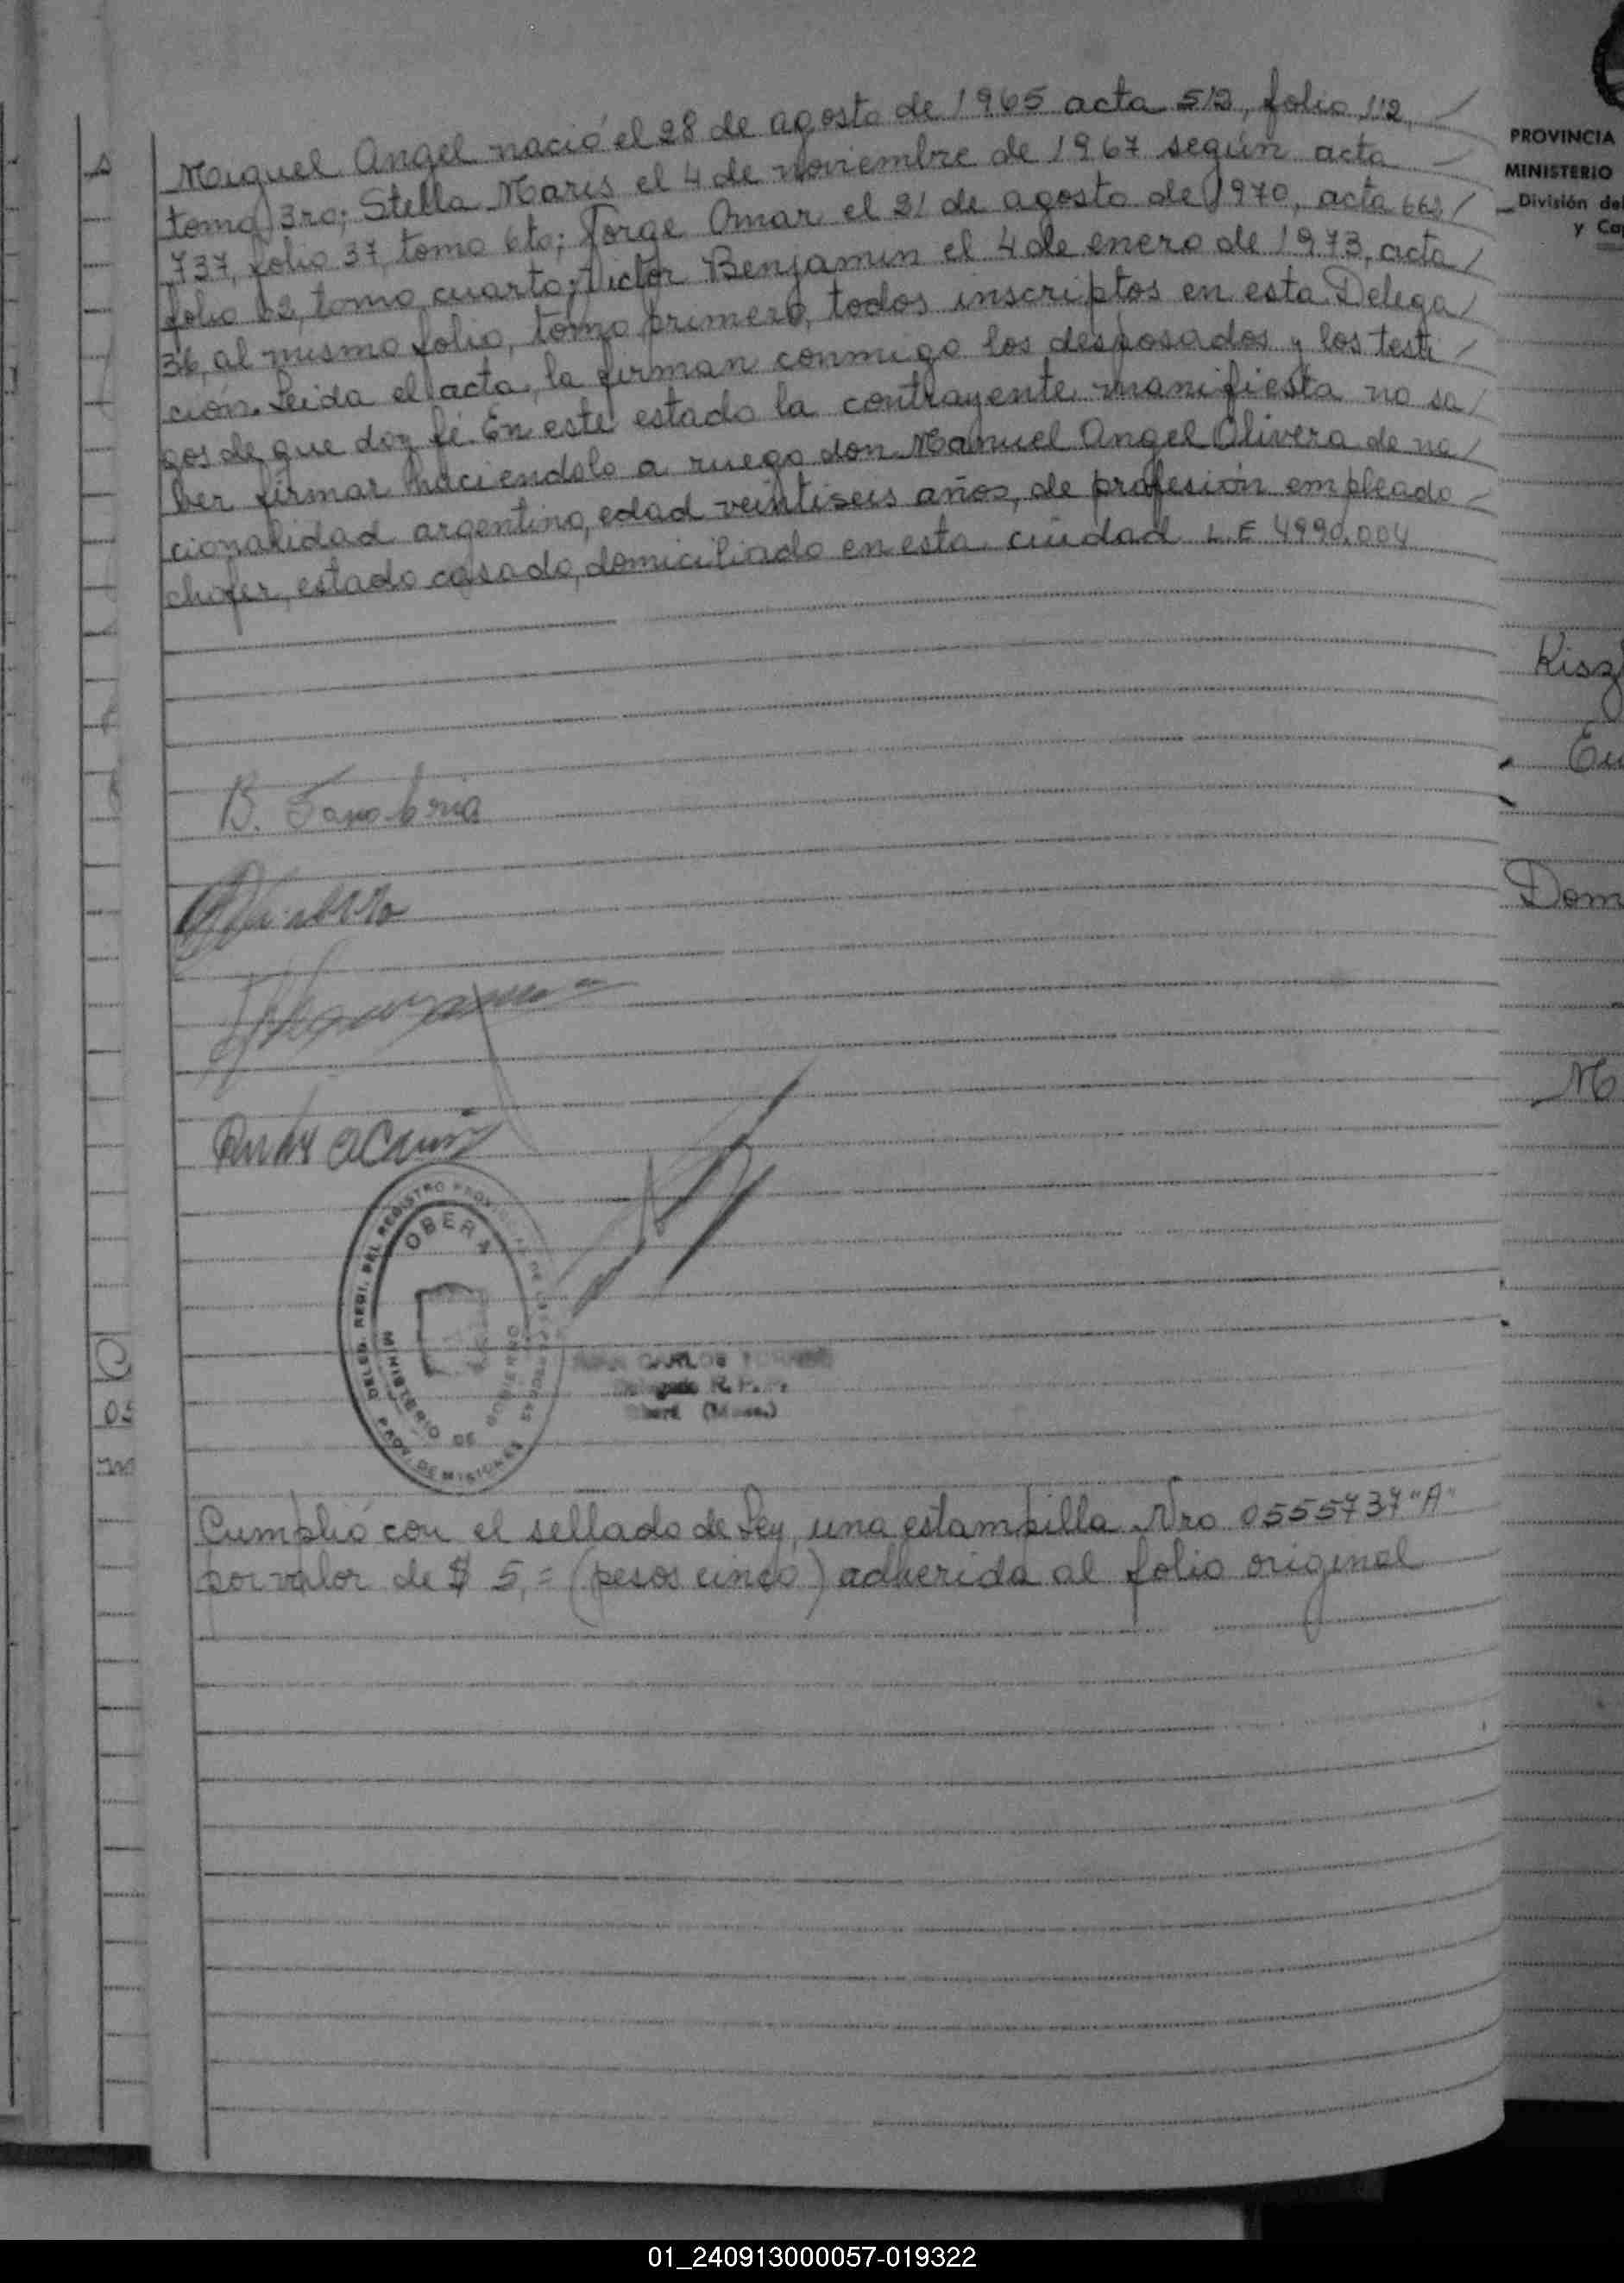 Miguel Angel nació el 28 de agosto de 1965 acta 512, folio 112,
tomo 3ro; Stella Maris el 4 de noviembre de 1967 según acta
737, folio 37, tomo 6to; Jorge Omar el 21 de agosto de 1970, acta 662
folio 62, tomo cuarto; Victor Benjamin el 4 de enero de 1973, acta
36, al mismo folio, tomo primero, todos inscriptos en esta Delega
ción. Leida el acta, la firman conmigo los desposados y los testi
gos de que doy fé. En este estado la contrayente manifiesta no sa
ber firmar haciendolo a ruego don Manuel Angel Olivera de na
cionalidad argentino, edad veintiseis años, de profesión empleado
chofer, estado casado, domiciliado en esta ciudad L.E 4990.004
B. Sanabria
DELEG. REGI. DEL REGISTRO PROVINCIAL DE LAS PERSONAS
OBERA
MINISTERIO DE GOBIERNO
PROV. DE MISIONES
JUAN CARLOS
Delegado R. P. P.
Oberá (Mnes.)
Cumplió con el sellado de Ley, una estampilla Nro 0555737 "A"
por valor de $ 5,= (pesos cinco) adherida al folio original
PROVINCIA
MINISTERIO
División del
y Cap
Kisz
Eu
Dom
M
05
01_240913000057-019322